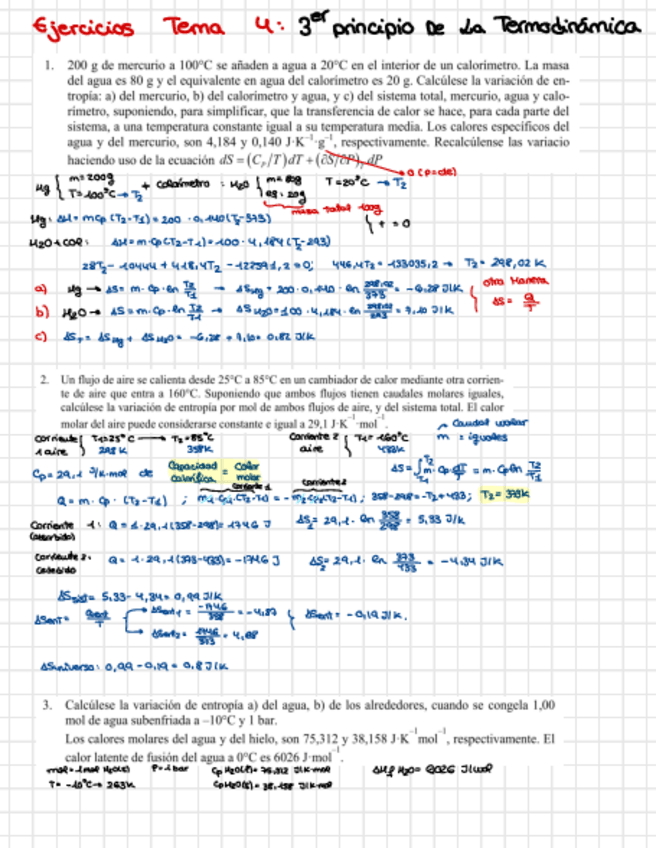 Ejercicios Tema 4: 3er principio De La Termodinámica
1. 200 g de mercurio a 100°C se añaden a agua a 20°C en el interior de un calorímetro. La masa
del agua es 80 g y el equivalente en agua del calorímetro es 20 g. Calcúlese la variación de en-
tropía: a) del mercurio, b) del calorímetro y agua, y c) del sistema total, mercurio, agua y calo-
rímetro, suponiendo, para simplificar, que la transferencia de calor se hace, para cada parte del
sistema, a una temperatura constante igual a su temperatura media. Los calores específicos del
agua y del mercurio, son 4,184 y 0,140 J·K⁻¹·g⁻¹, respectivamente. Recalcúlense las variacio
haciendo uso de la ecuación dS = (Cp/T)dT + (∂S/∂P)T dP
0 (P=cte)
Hg { m=200g
T=100°C→T2
+ calorímetro : H2O { m=80g
eq: 20g
T=20°C → T2
masa total 100g
Hg: ΔH = mCp (T2-T1) = 200 · 0,140(T2-373)
} + = 0
H2O+cor: ΔH = m·Cp(T2-T1) = 100 · 4,184 (T2-293)
28T2 - 10444 + 418,4T2 - 122591,2 = 0; 446,4T2 = 133035,2 → T2 = 298,02 K
a) Hg → ΔS = m·Cp·ln T2/T1 → ΔSHg = 200·0,140·ln 298,02/373 = -6,28 J/K
otra manera
ΔS = Q/T
b) H2O → ΔS = m·Cp·ln T2/T1 → ΔSH2O = 100·4,184·ln 298,02/293 = 7,10 J/K
c) ΔST = ΔSHg + ΔSH2O = -6,28 + 7,10 = 0,82 J/K
2. Un flujo de aire se calienta desde 25°C a 85°C en un cambiador de calor mediante otra corrien-
te de aire que entra a 160°C. Suponiendo que ambos flujos tienen caudales molares iguales,
calcúlese la variación de entropía por mol de ambos flujos de aire, y del sistema total. El calor
molar del aire puede considerarse constante e igual a 29,1 J·K⁻¹·mol⁻¹.
Caudal molar
m = iguales
Corriente 1 aire { T1=25°C → T2=85°C
298K 358K
Corriente 2 aire { T1=160°C
433K
Cp = 29,1 J/K·mol de Capacidad calorífica = Calor molar
ΔS = ∫T1 T2 m·Cp·dT/T = m·Cp ln T2/T1
corriente 1 corriente 2
Q = m·Cp·(T2-T1) ; m1·Cp1·(T2-T1) = -m2Cp2(T2-T1) ; 358-298 = -T2+433; T2 = 373K
Corriente 1: Q = 1·29,1(358-298) = 1746 J ΔS1 = 29,1·ln 358/298 = 5,33 J/K
(absorbido)
Corriente 2: Q = 1·29,1(373-433) = -1746 J ΔS2 = 29,1·ln 373/433 = -4,34 J/K
Cedido
ΔSsist = 5,33 - 4,34 = 0,99 J/K
ΔSent = Qent/T
ΔSent1 = -1746/358 = -4,87
ΔSent2 = 1746/373 = 4,68
} ΔSent = -0,19 J/K.
ΔSuniverso: 0,99 - 0,19 = 0,8 J/K
3. Calcúlese la variación de entropía a) del agua, b) de los alrededores, cuando se congela 1,00
mol de agua subenfriada a –10°C y 1 bar.
Los calores molares del agua y del hielo, son 75,312 y 38,158 J·K⁻¹mol⁻¹, respectivamente. El
calor latente de fusión del agua a 0°C es 6026 J·mol⁻¹.
P=1 bar Cp H2O(l) = 75,312 J/K·mol ΔHf H2O = 6026 J/mol
T = -10°C → 263K Cp H2O(s) = 38,158 J/K·mol